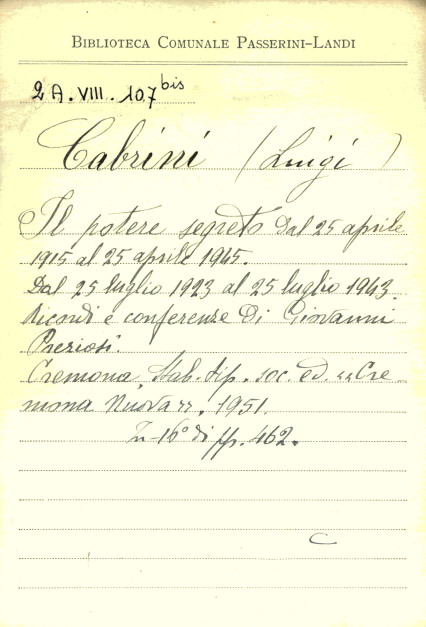 BIBLIOTECA COMUNALE PASSERINI-LANDI
2 A. VIII. 107 bis
Cabrini (Luigi)
Il potere segreto dal 25 aprile
1915 al 25 aprile 1945.
Dal 25 luglio 1923 al 25 luglio 1943.
Ricordi e conferenze di Giovanni
Preziosi.
Cremona, Stab. tip. soc. ed. "Cre
mona Nuova", 1951.
In-16° di pp. 462.
C